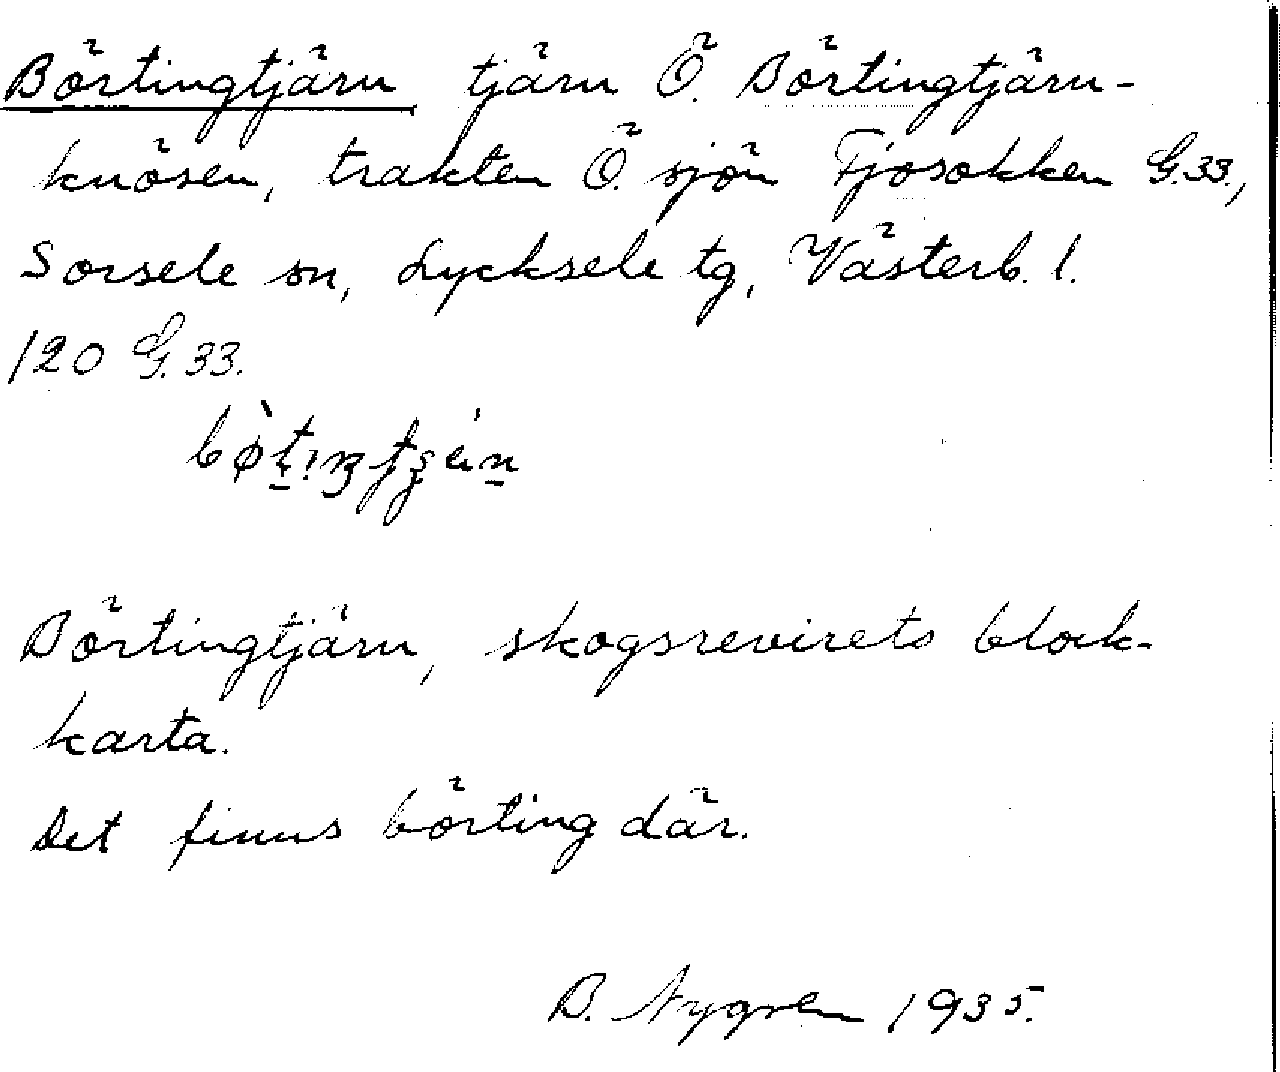 Börtingtjärn tjärn Ö. Börtingtjärn-
knösen, trakten Ö. sjön Fjosokken G.33.,
Sorsele sn, Lycksele tg, Västerb. l.
120 G.33.
Börtingtjärn, skogsrevirets block-
karta.
Det finns börting där.
B. Nygren 1935.